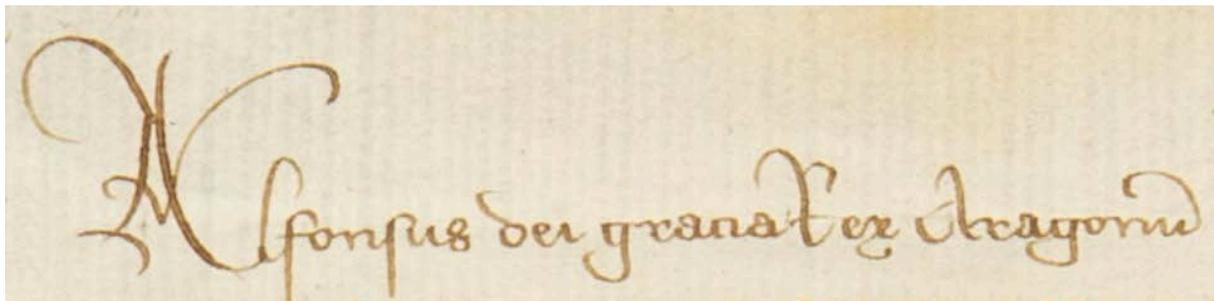 Alfonsus dei gracia Rex Aragonum